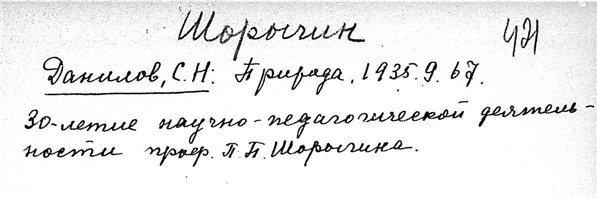 Шорыгин 421
Данилов, С.Н: Природа, 1935.9.67.
30-летие научно-педагогической деятель-
ности проф. П.П. Шорыгина.